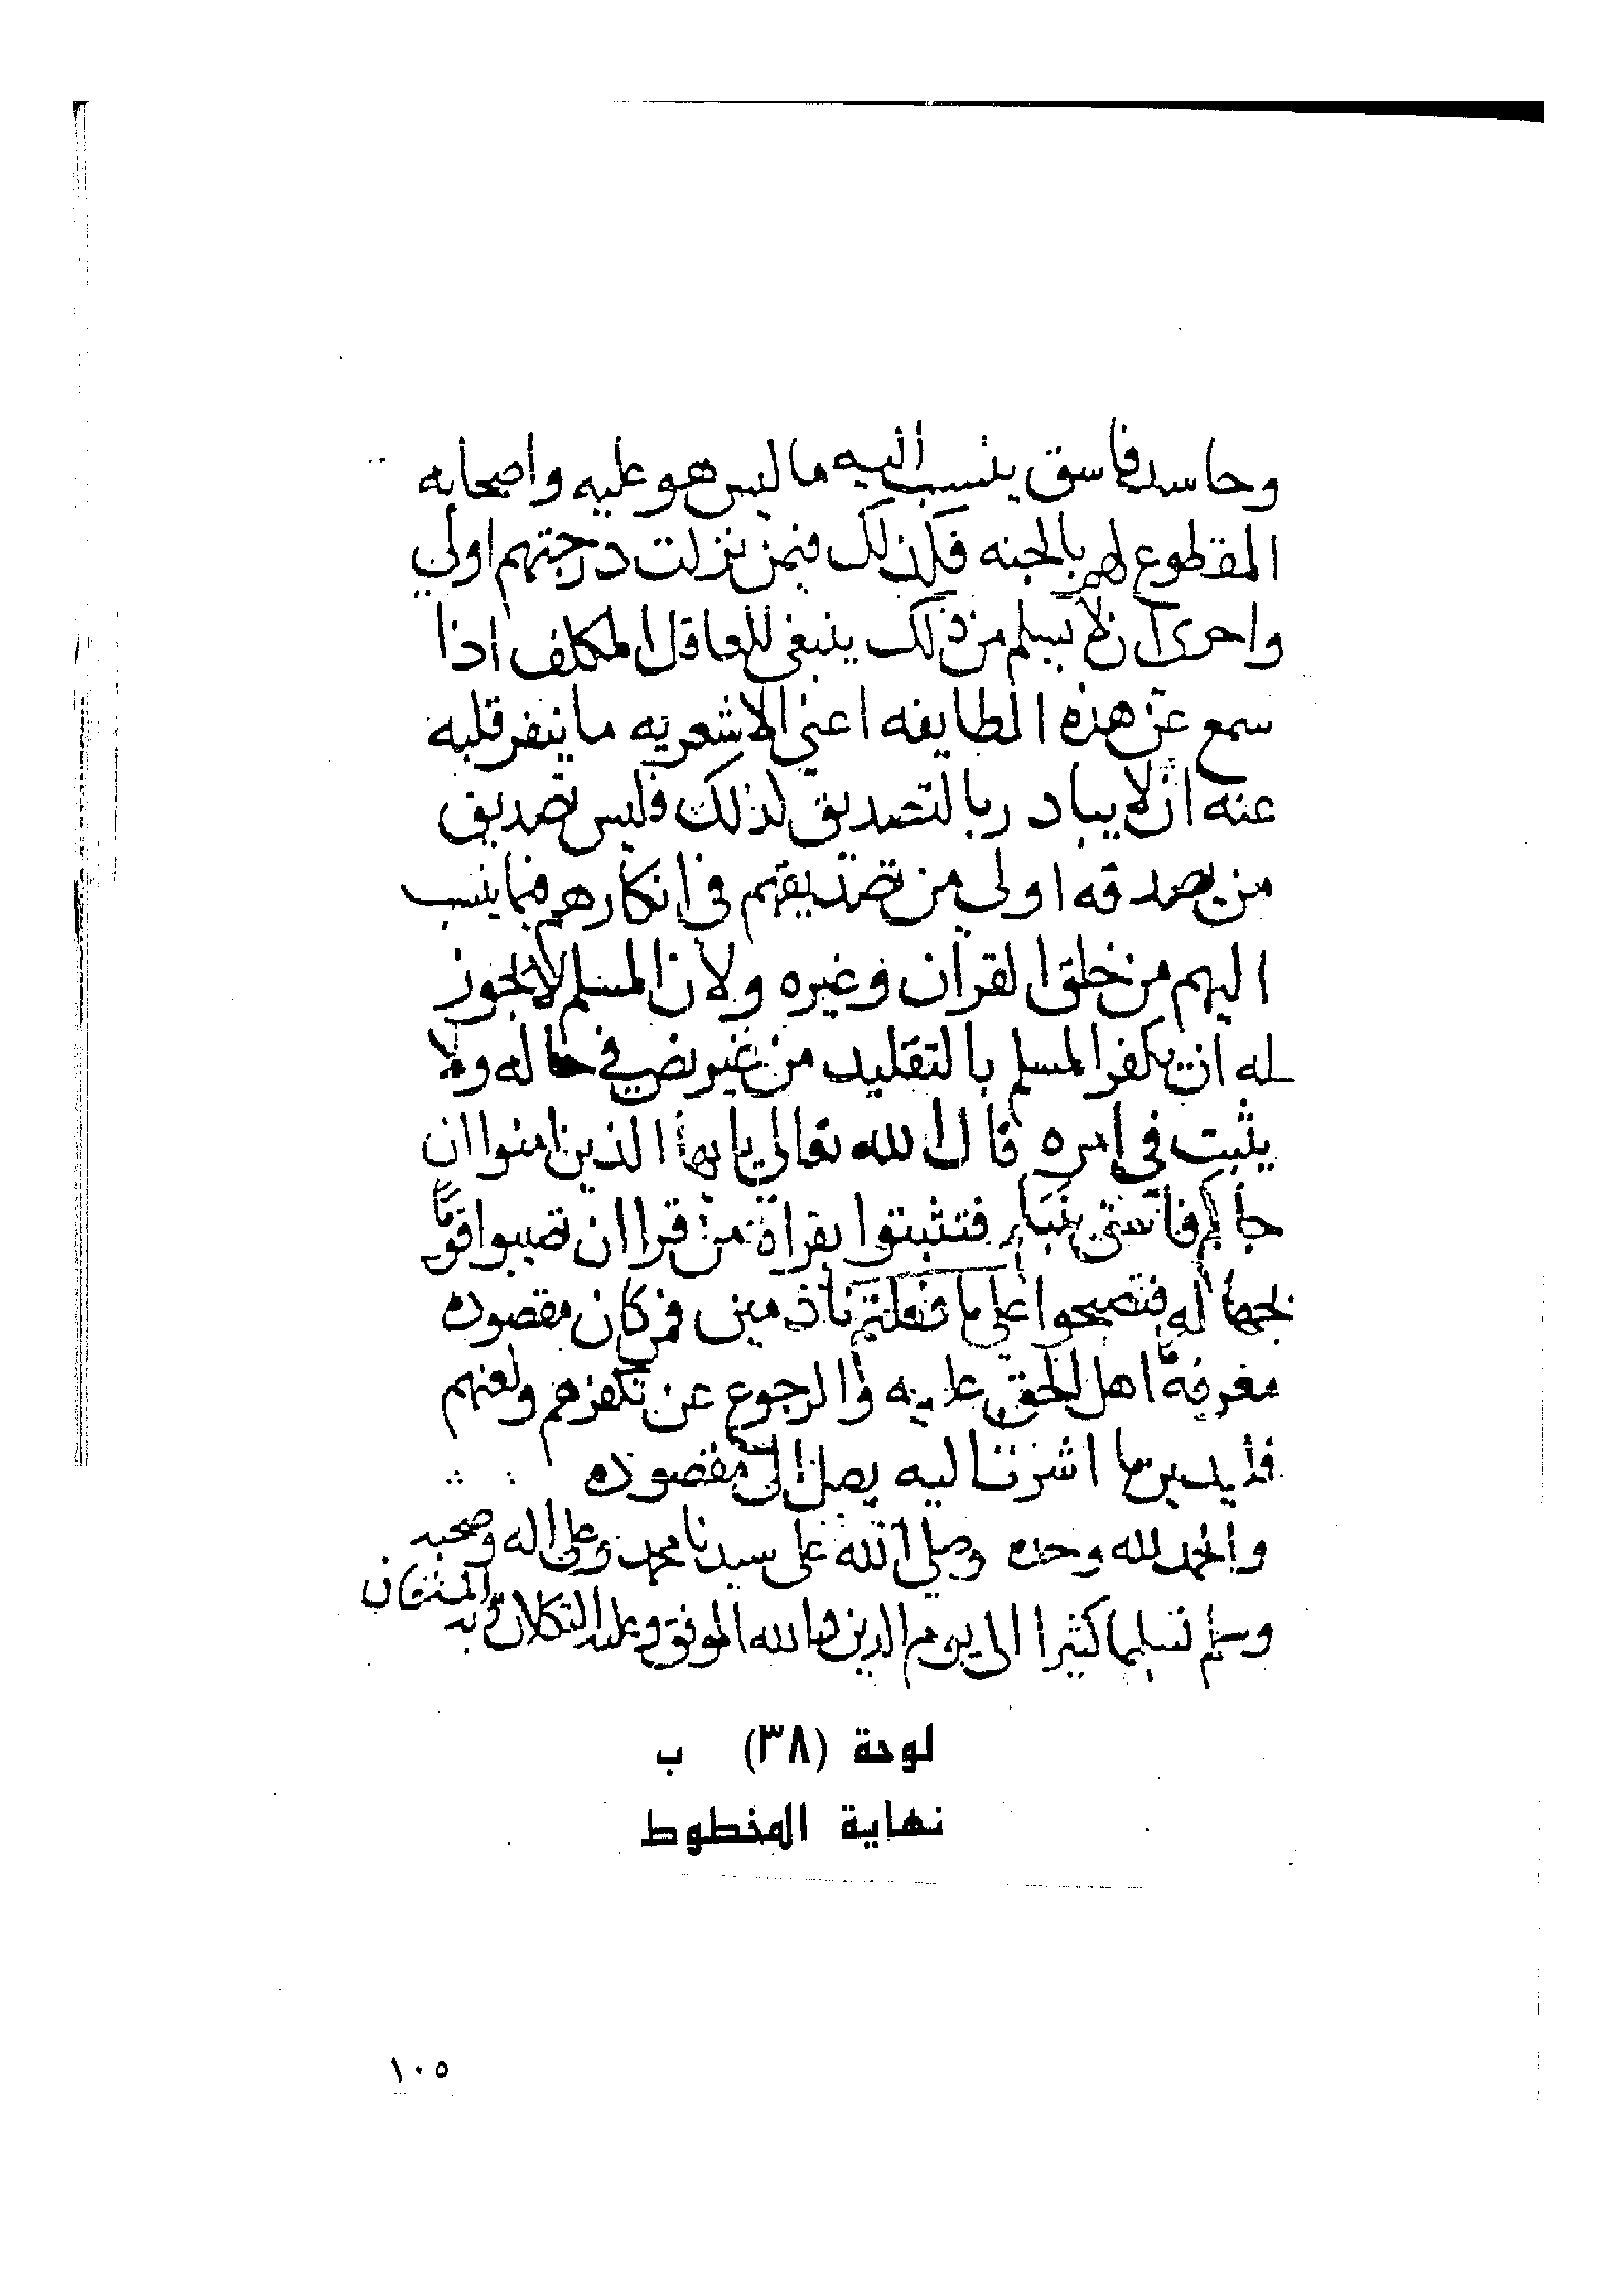 وحاسد فاسق ينسب اليه ما ليس هو عليه واصحابه
المقطوع لهم بالجنه فكذلك فيمن نزلت درجتهم اولي
واحرى ان لا يسلم من ذلك ينبغي للعاقل المكلف اذا
سمع عن هذه الطايفه اعني الاشعريه ما ينفر قلبه
عنه ان لا يبادر بالتصديق لذلك فليس تصديق
من يصدقه اولي من تصديقهم في انكارهم فيما ينسب
اليهم من خلق القران وغيره ولان المسلم لا يجوز
له ان يكفر المسلم بالتقليد من غير نص في حاله ولا
يثبت في امره قال الله تعالي يا يها الذين امنوا ان
جاكم فاسق بنبإ فتثبتوا بقراة من قرا ان تصيبوا قومًا
بجهاله فتصبحوا علي ما فعلتم نادمين فمن كان مقصوده
معرفة ما اهل الحق عليه والرجوع عن تكفيرهم ولعنهم
ما اشرنا اليه يصل الى مقصوده
والحمد لله وحده وصلي الله على سيدنا محمد وعلى اله وصحبه
وسلم تسليما كثيرا الى يوم الدين والله الموفق وعليه التكلان وبه المستعان
لوحة (٣٨) ب
نهاية المخطوط
١٠٥